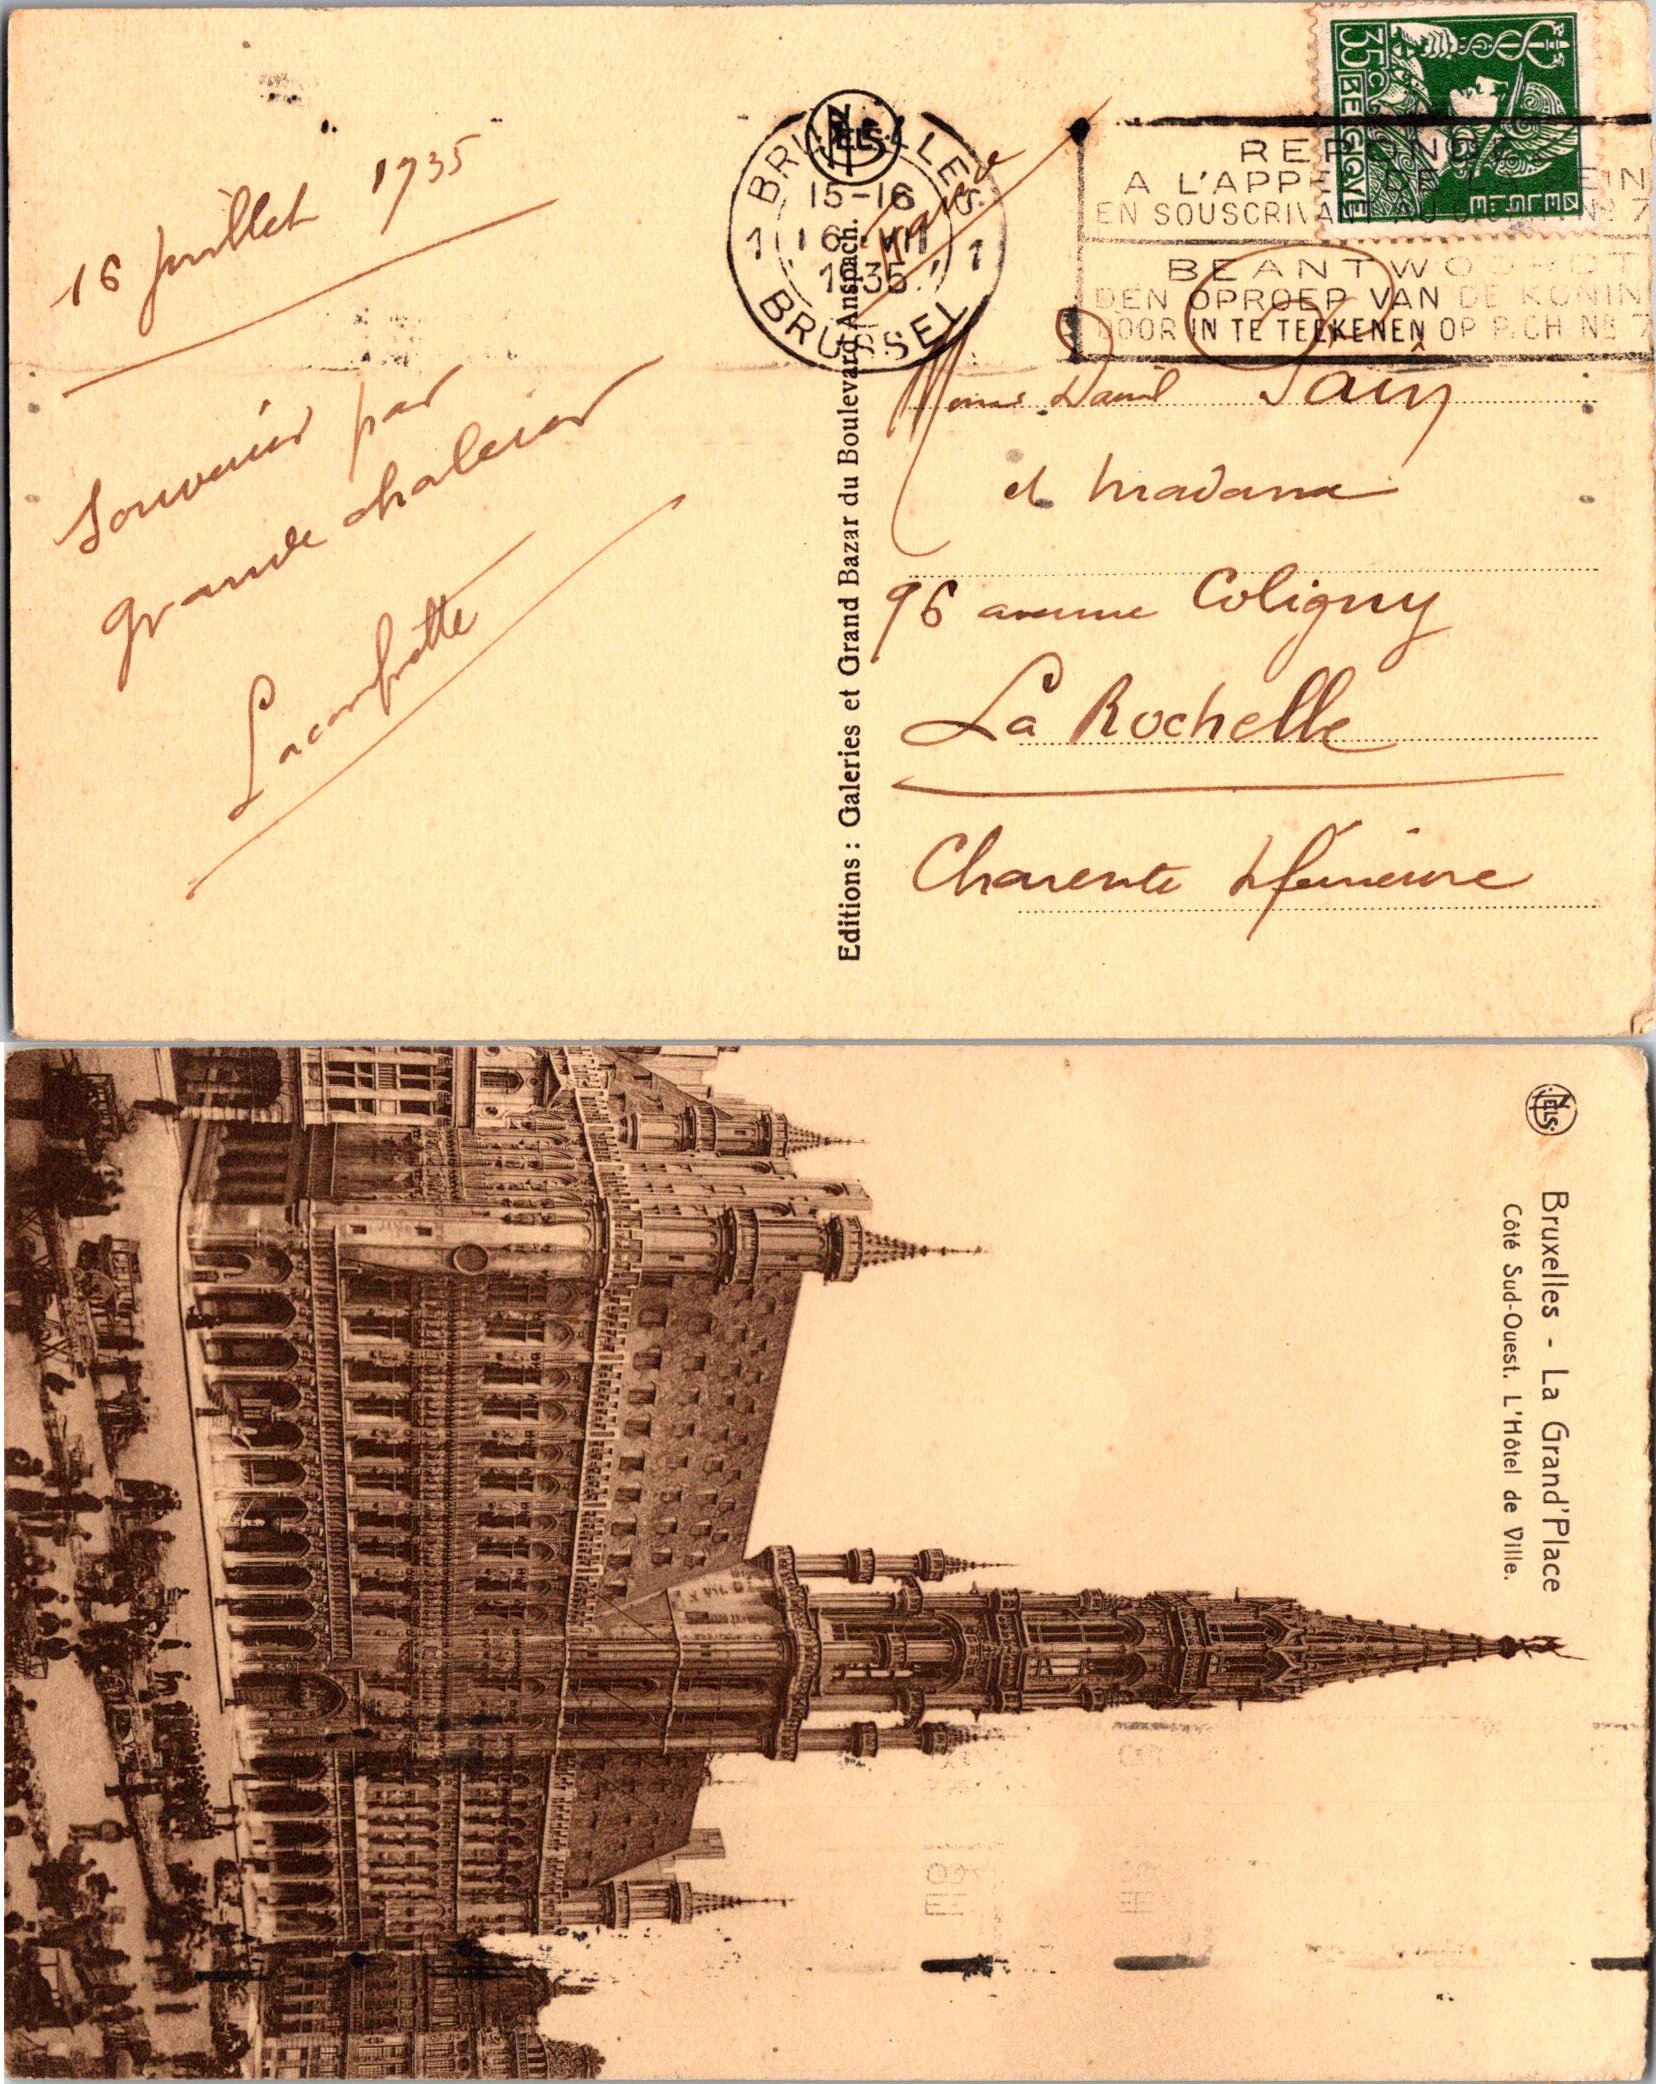 16 juillet 1935
Souvenir par
grande chaleur
NELS
BRUXELLES
15-16
16 VII
1935
1 1
BRUSSEL
35c BELGIQUE
BELGIE
REPONDEZ
A L'APPEL DE LA REINE
EN SOUSCRIVANT AU C.CH. No 7
BEANTWOORDT
DEN OPROEP VAN DE KONIN
DOOR IN TE TEEKENEN OP P.CH No 7
Editions : Galeries et Grand Bazar du Boulevard Anspach.
France
et Madame
96 avenue Coligny
La Rochelle
Charente Inférieure
NELS
Bruxelles - La Grand'Place
Côté Sud-Ouest. L'Hôtel de Ville.